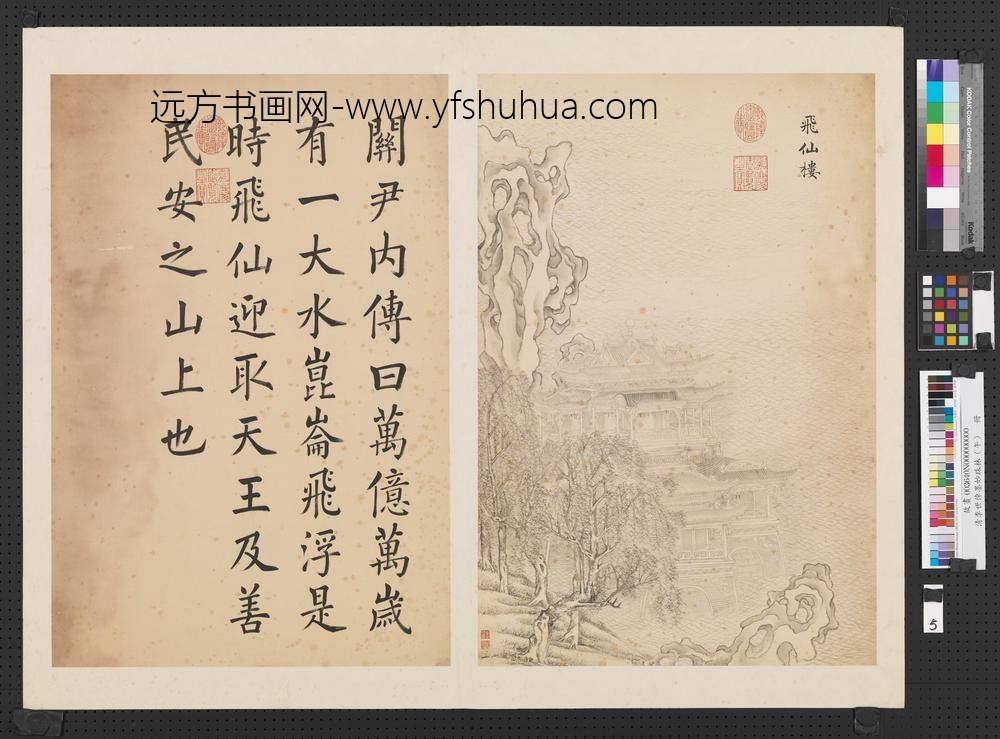 远方书画网-www.yfshuhua.com
飛仙樓
關尹内傳曰萬億萬歲
有一大水崑崙飛浮是
時飛仙迎取天王及善
民安之山上也
KODAK Color Control Patches
Kodak
清李世倬墨妙珠林(午) 冊
5